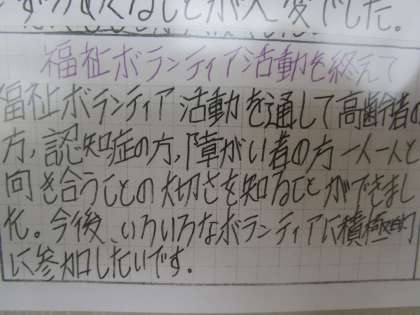 することが大変でした。
福祉ボランティア活動を終えて
福祉ボランティア活動を通して高齢者の
方,認知症の方,障がい者の方一人一人と
向き合うことの大切さを知ることができまし
た。今後、いろいろなボランティアに積極的
に参加したいです。